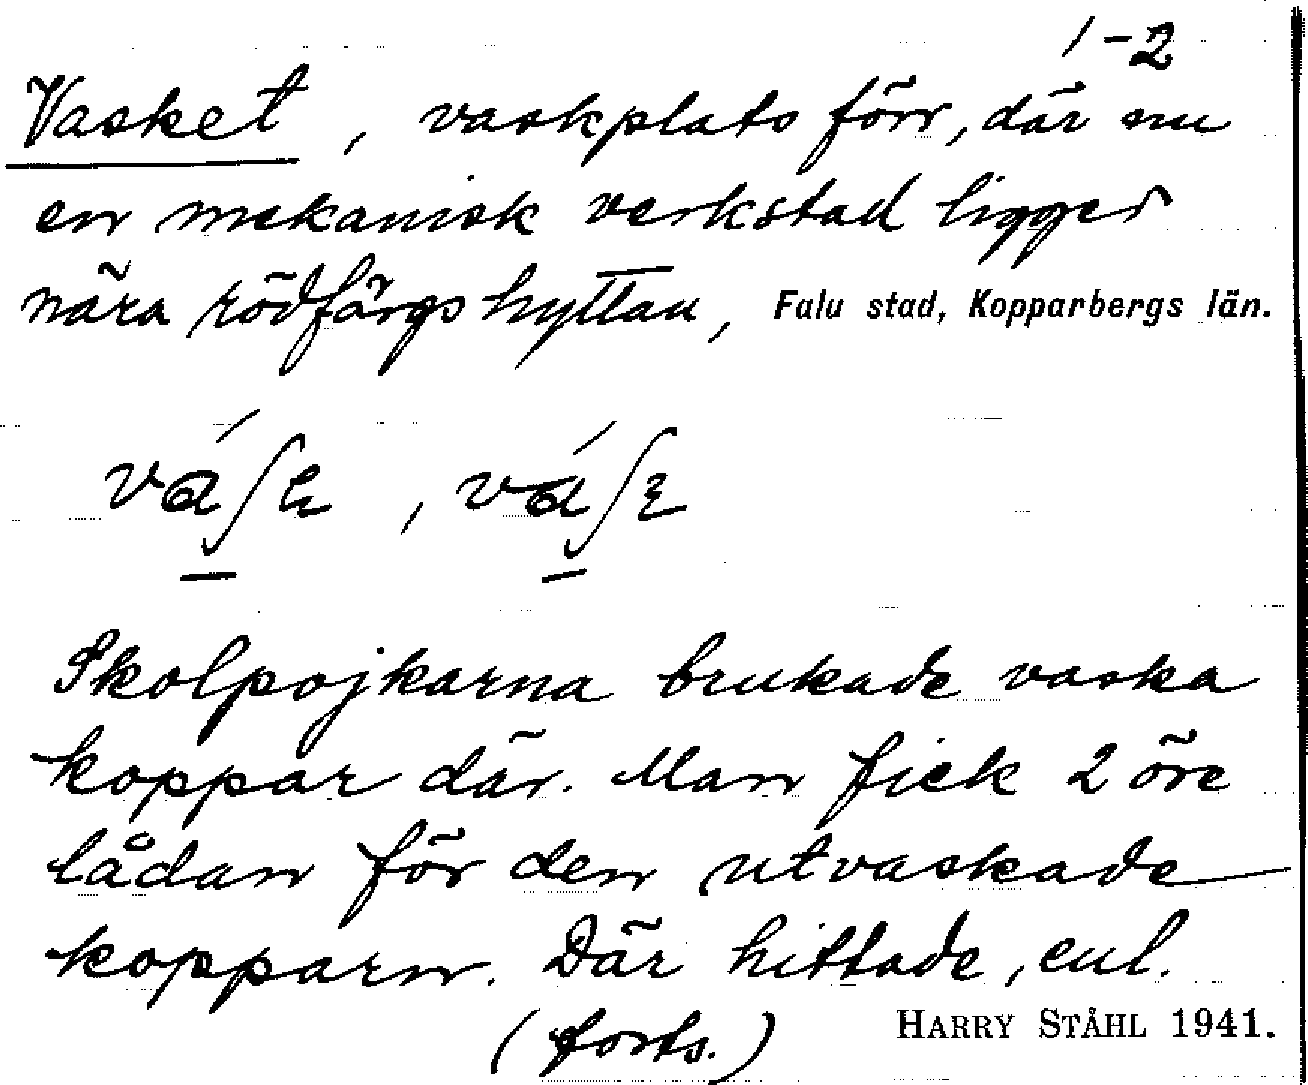 1-2
Vasket, vaskplats förr, där nu
en mekanisk verkstad ligger
nära rödfärgshyttan, Falu stad, Kopparbergs län.
Skolpojkarna brukade vaska
koppar där. Man fick 2 öre
lådan för den utvaskade
kopparn. Där hittade, enl.
(forts.) HARRY STÅHL 1941.